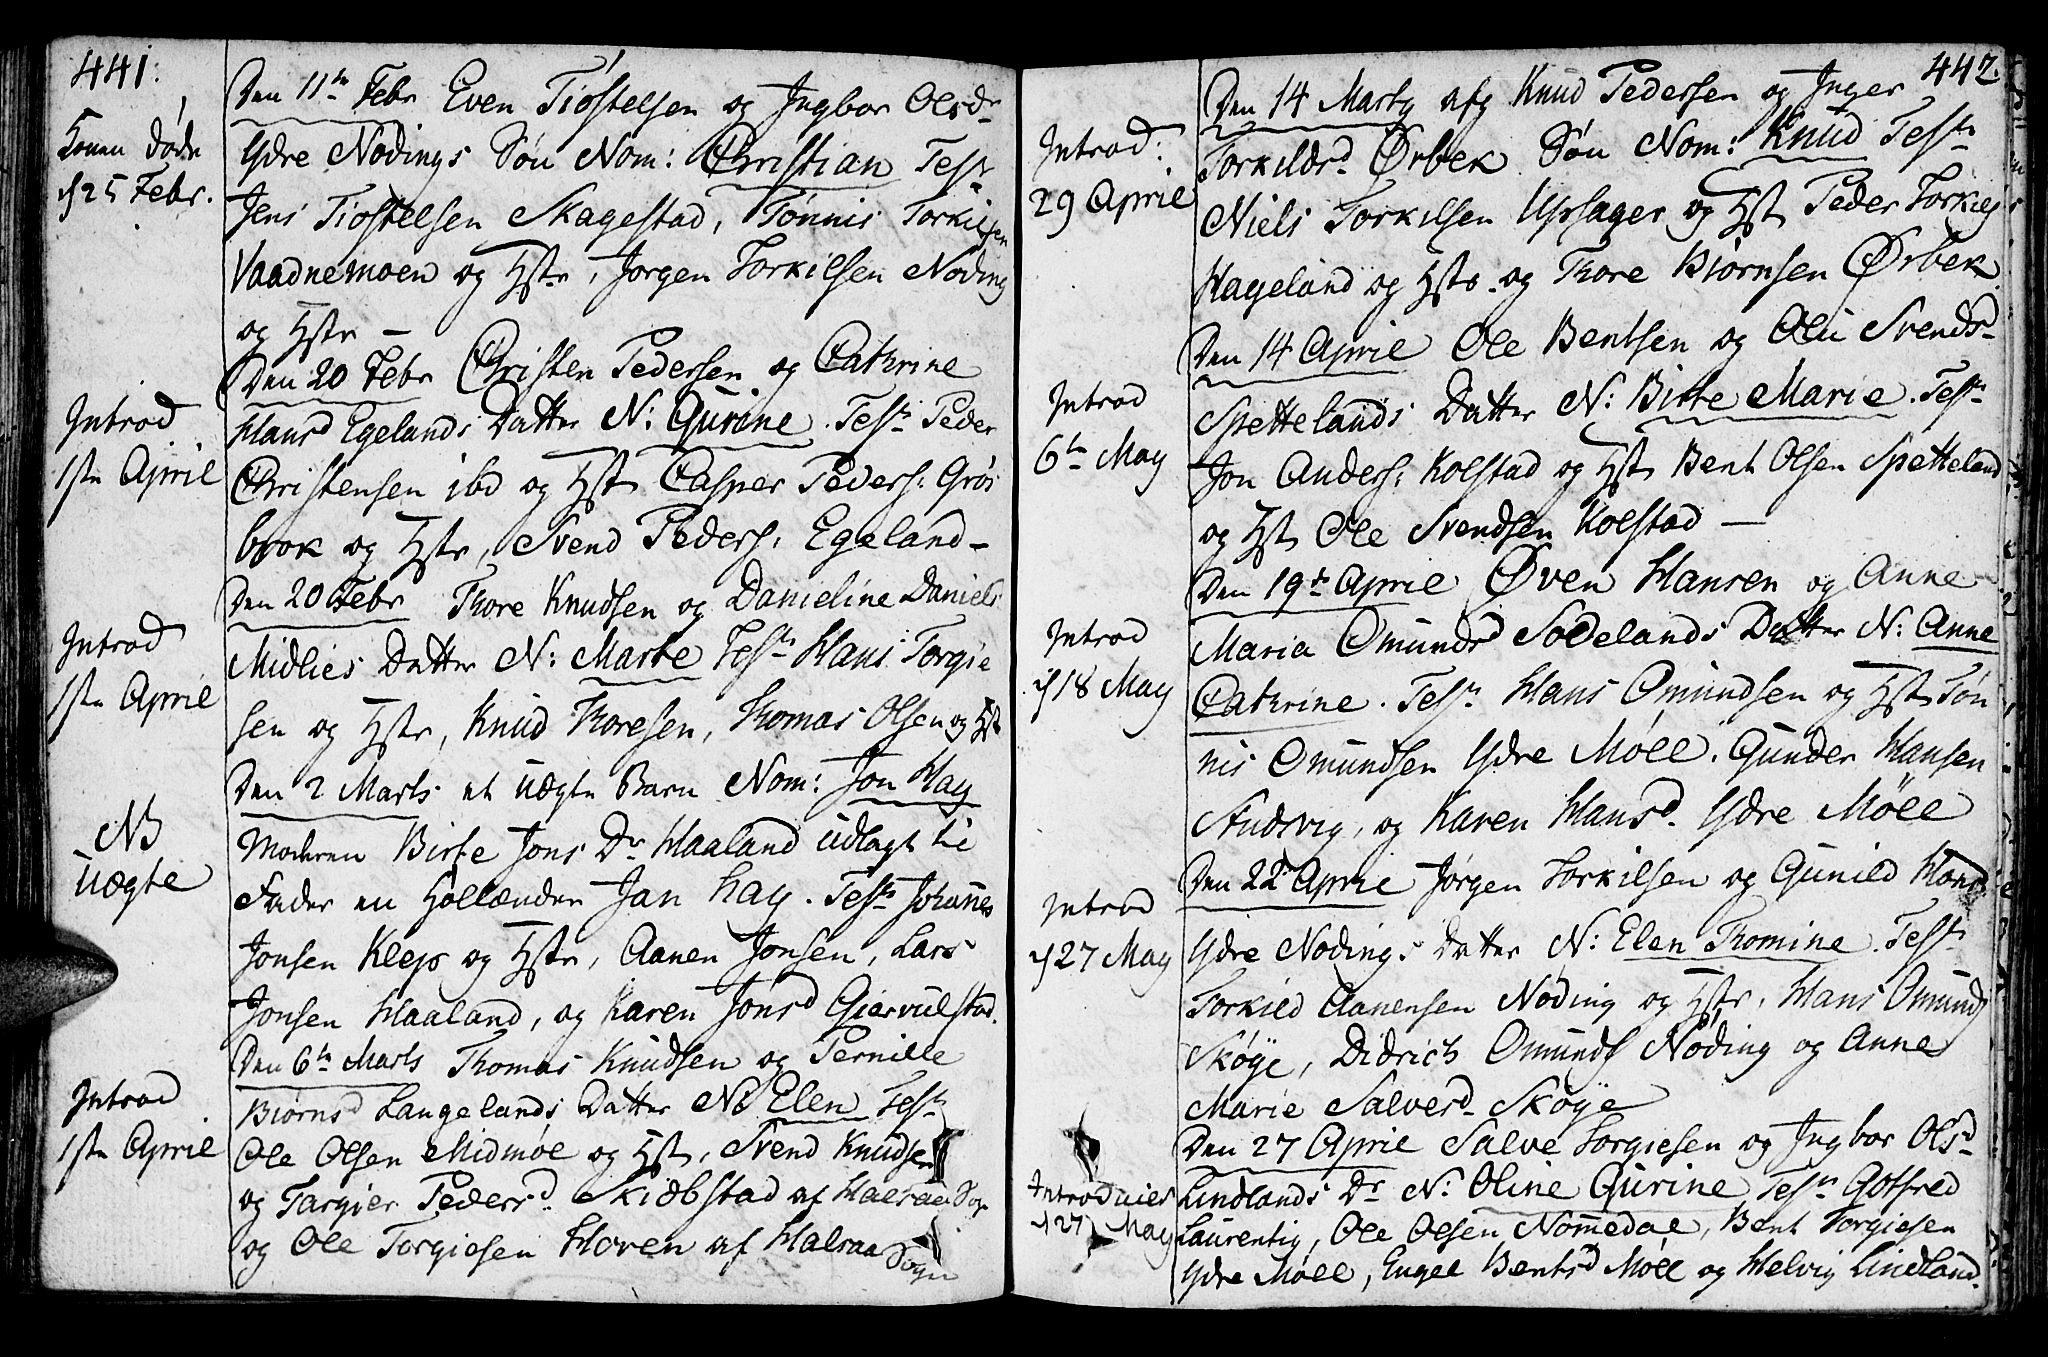 441.
Konen døde
d 25 Febr.
Den 11te Febr Even Tiøstelsen og Ingbor Olsdr
Ydre Nødings Søn Nom: Christian Testr
Jens Tiøstelsen Skagestad, Tønnis Torkilsen
Vaadnemoen og Hstr, Jørgen Torkilsen Nøding
og Hstr —
Introd
1ste April
Den 20 Febr Christen Pedersen og Cathrine
Hansd Egelands Datter N: Gurine. Test: Peder
Christensen ibd og Hstr Casper Peders: Grøs
brok og Hstr, Svend Peders: Egeland –
Introd
1ste April
Den 20 Febr Thore Knudsen og Danieline Daniels
Midlies Datter N: Marte Test: Hans Torgie
sen og Hstr, Knud Thoresen, Thomas Olsen og Hst
NB
uægte
Den 2 Marts et uægte Barn Nom: Jon Hay
Moderen Birte Jons Dr Haaland udlagt til
Fader en Hollænder Jan Hay. Test: Johannes
Jonsen Klep og Hstr, Aanen Jonsen, Lars
Jonsen Haaland, og Karen Jonsd Giervulstad.
Introd
1ste April
Den 6te Marts Thomas Knudsen og Pernille
Biørnsd Langelands Datter No Elen Test:
Ole Olsen Midmøl og Hst, Svend Knudsen
og Targier Pedersd Skiæbstad af Halsaa Sogn
og Ole Torgiesen Hoven af Halsaa Sogn
442.
Introd:
29 April
Den 14 Marty afg Knud Pedersen og Inger
Torkildsd Ørbek Søn Nom: Knud Test:
Niels Torkilsen Upsager og Hst Peder Torkils
Hageland og Hstr og Thore Biørnsen Ørbek
Introd
6te May
Den 14 April Ole Bentsen og Oli Svendsd
Spettelands Datter N: Birte Marie. Test:
Jon Anders: Kolstad og Hst Bent Olsen Spetteland
og Hst Ole Svendsen Kolstad —
Introd
d 18 May
Den 19de April Øven Hansen og Anne
Maria Omundsd Sodelands Datter N: Anne
Cathrine. Test: Hans Omundsen og Hst Tøn
nis Omundsen Ydre Møll. Gunder Hansen
Studsvig, og Karen Hansd Ydre Møll
Introd
d 27 May
Den 22 April Jørgen Torkilsen og Gunild Hansd
Ydre Nødings Datter N: Elen Thomine. Test:
Torkild Aanensen Nøding og Hstr, Hans Omunds
Skøye, Didrich Omunds Nøding og Anne
Marie Salvesd Skøye
Introduceres
d 27 May
Den 27 April Salve Torgiesen og Ingbor Olsd
Lindlands Dr N: Oline Gurine Test: Gotfred
Laurentiy, Ole Olsen Nomedal, Bent Torgiesen
Ydre Møll, Engel Bentsd Møll og Helvig Lindland.